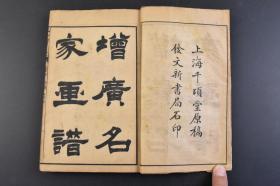 增廣名
家畫譜
上海千頃堂原稿
發文新書局石印